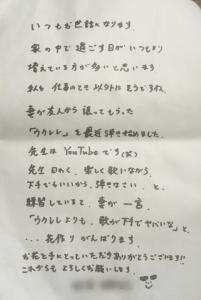 いつもお世話になります。
家の中で過ごす日がいつもより
増えている方が多いと思います
私も仕事のとき以外はそうですね。
妻が友人から譲ってもらった
「ウクレレ」を最近弾き始めました。
先生は YouTubeです(笑)
先生曰く、楽しく歌いながら
下手でもいいから、弾きなさい。と、
練習していると、妻が一言。
「ウクレレよりも、歌が下手でヤバいな」と
...花作りがんばります。
お花を手にとっていただきありがとうございます!!
これからもよろしくお願いします。